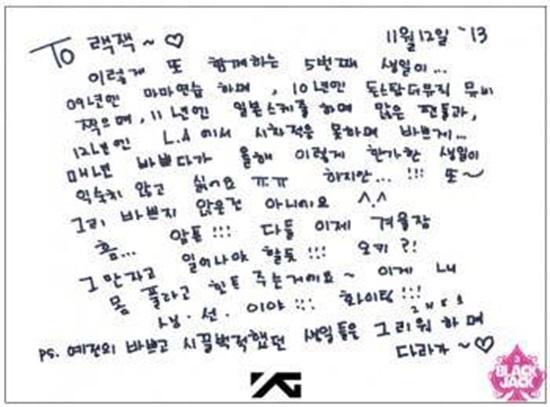 To 랙잭~♡ 11월12일 '13
이렇게 또 함께하는 5번째 생일이...
09년엔 마마연습 하며, 10년엔 돈스탑더뮤직 뮤비
찍으며, 11년엔 일본스케쥴 하며 많은 팬들과,
12년엔 L.A에서 시차적응 못하며 바쁘게...
매년 바쁘다가 올해 이렇게 한가한 생일이
익숙치 않고 싫어요 ㅠㅠ 하지만...!!! 또~
그리 바쁘지 않은건 아니에요 ^.^
흠... 암튼!!! 다들 이제 겨울잠
그만자고 일어나야 할듯!!! 오키?!
몸 풀라고 힌트 주는거에요~ 이게 내
생.선.이야!!! 화이팅!!!
PS. 예전의 바쁘고 시끌벅적했던 생일들은 그리워하며
2NE1
다라가~♡
YG
BLACK
JACK